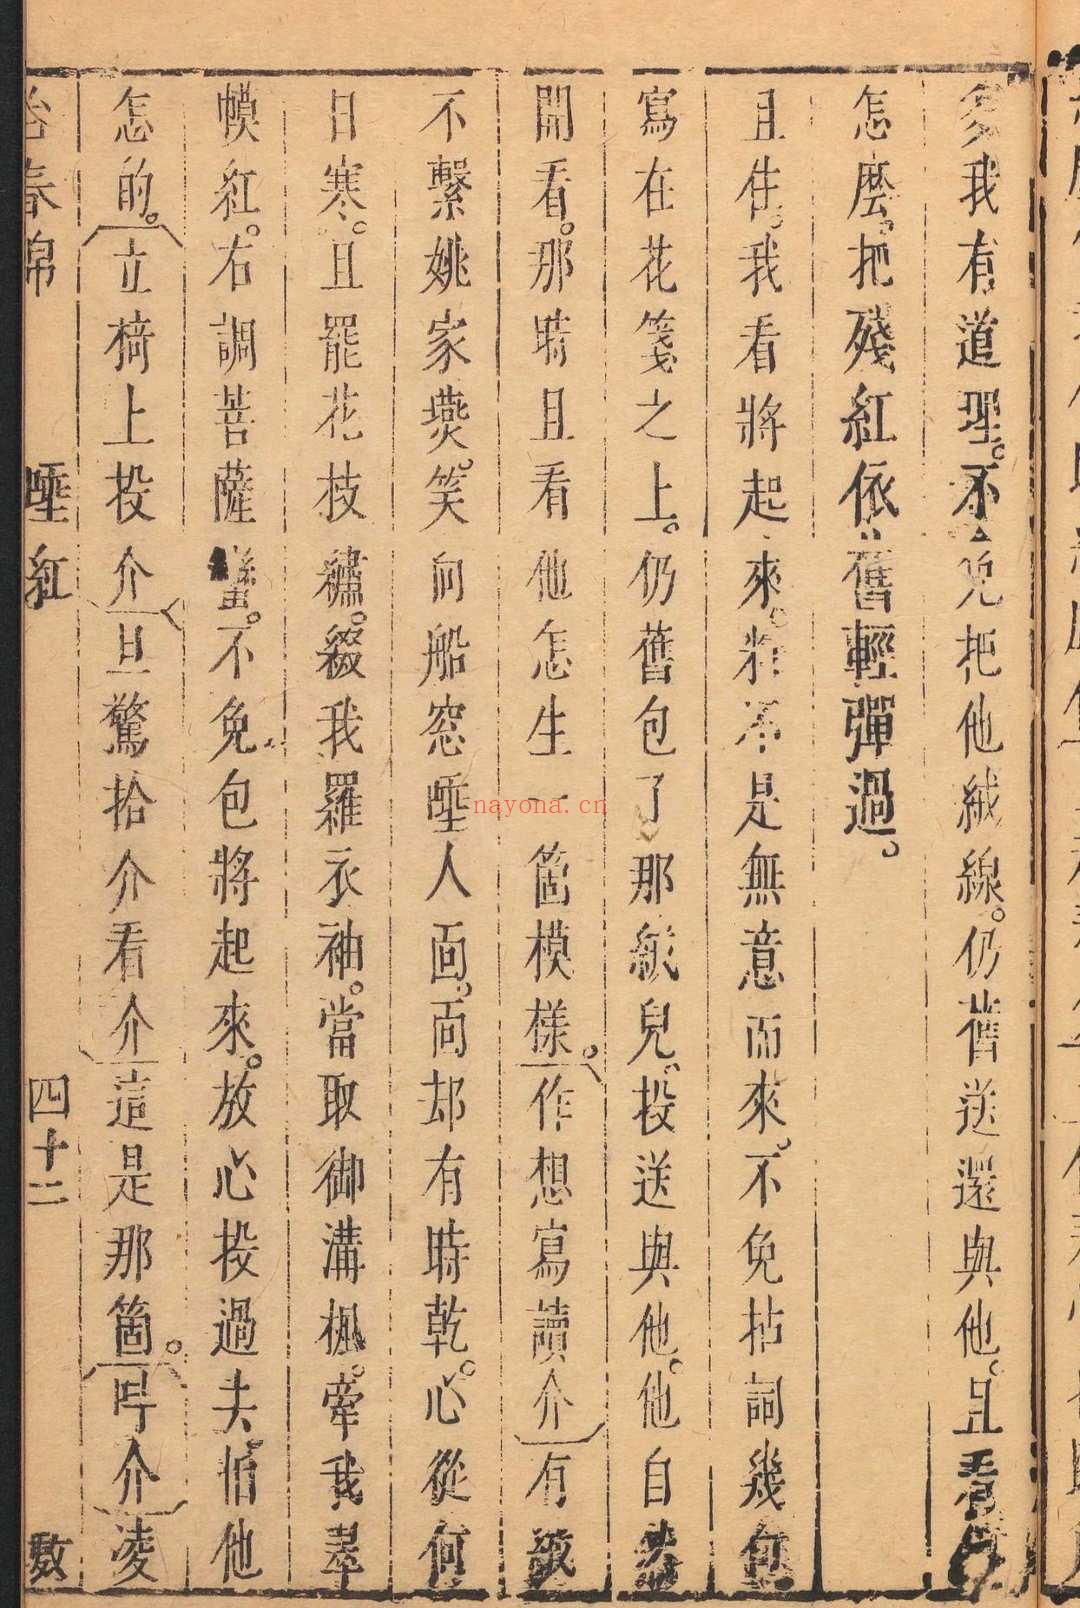 我有道理。不免把他絨線。仍舊送還與他。且看
怎麽。把殘紅依舊輕彈過。
且住。我看將起來。粧不是無意而來。不免拈詞幾句
寫在花箋之上。仍舊包了那絨兒。投送與他。他自
開看。那時且看他怎生一箇模樣。作想寫讀介有
不繫姚家燕。笑向船窓唾人面。面却有時乾。心從何
日寒。且罷花枝繡。綴我羅衣袖。當取御溝楓。牽我翠
幙紅。右調菩薩蠻。不免包將起來。放心投過去。怕他
怎的。立椅上投介旦驚拾介看介這是那箇。吽介凌
春錦
唾紅
四十二
nayona.cn